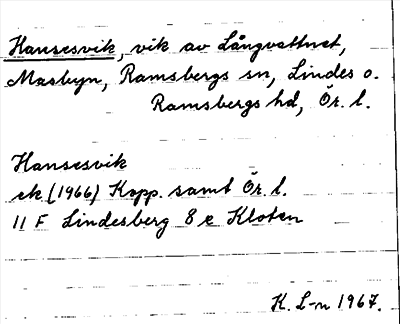 Hansesvik, vik av Långvattnet,
Masbyn, Ramsbergs sn, Lindes o.
Ramsbergs hd, Ör. l.
Hansesvik
ek (1966) Kopp. samt Ör. l.
11 F Lindesberg 8 e Kloten
K. L-n 1967.